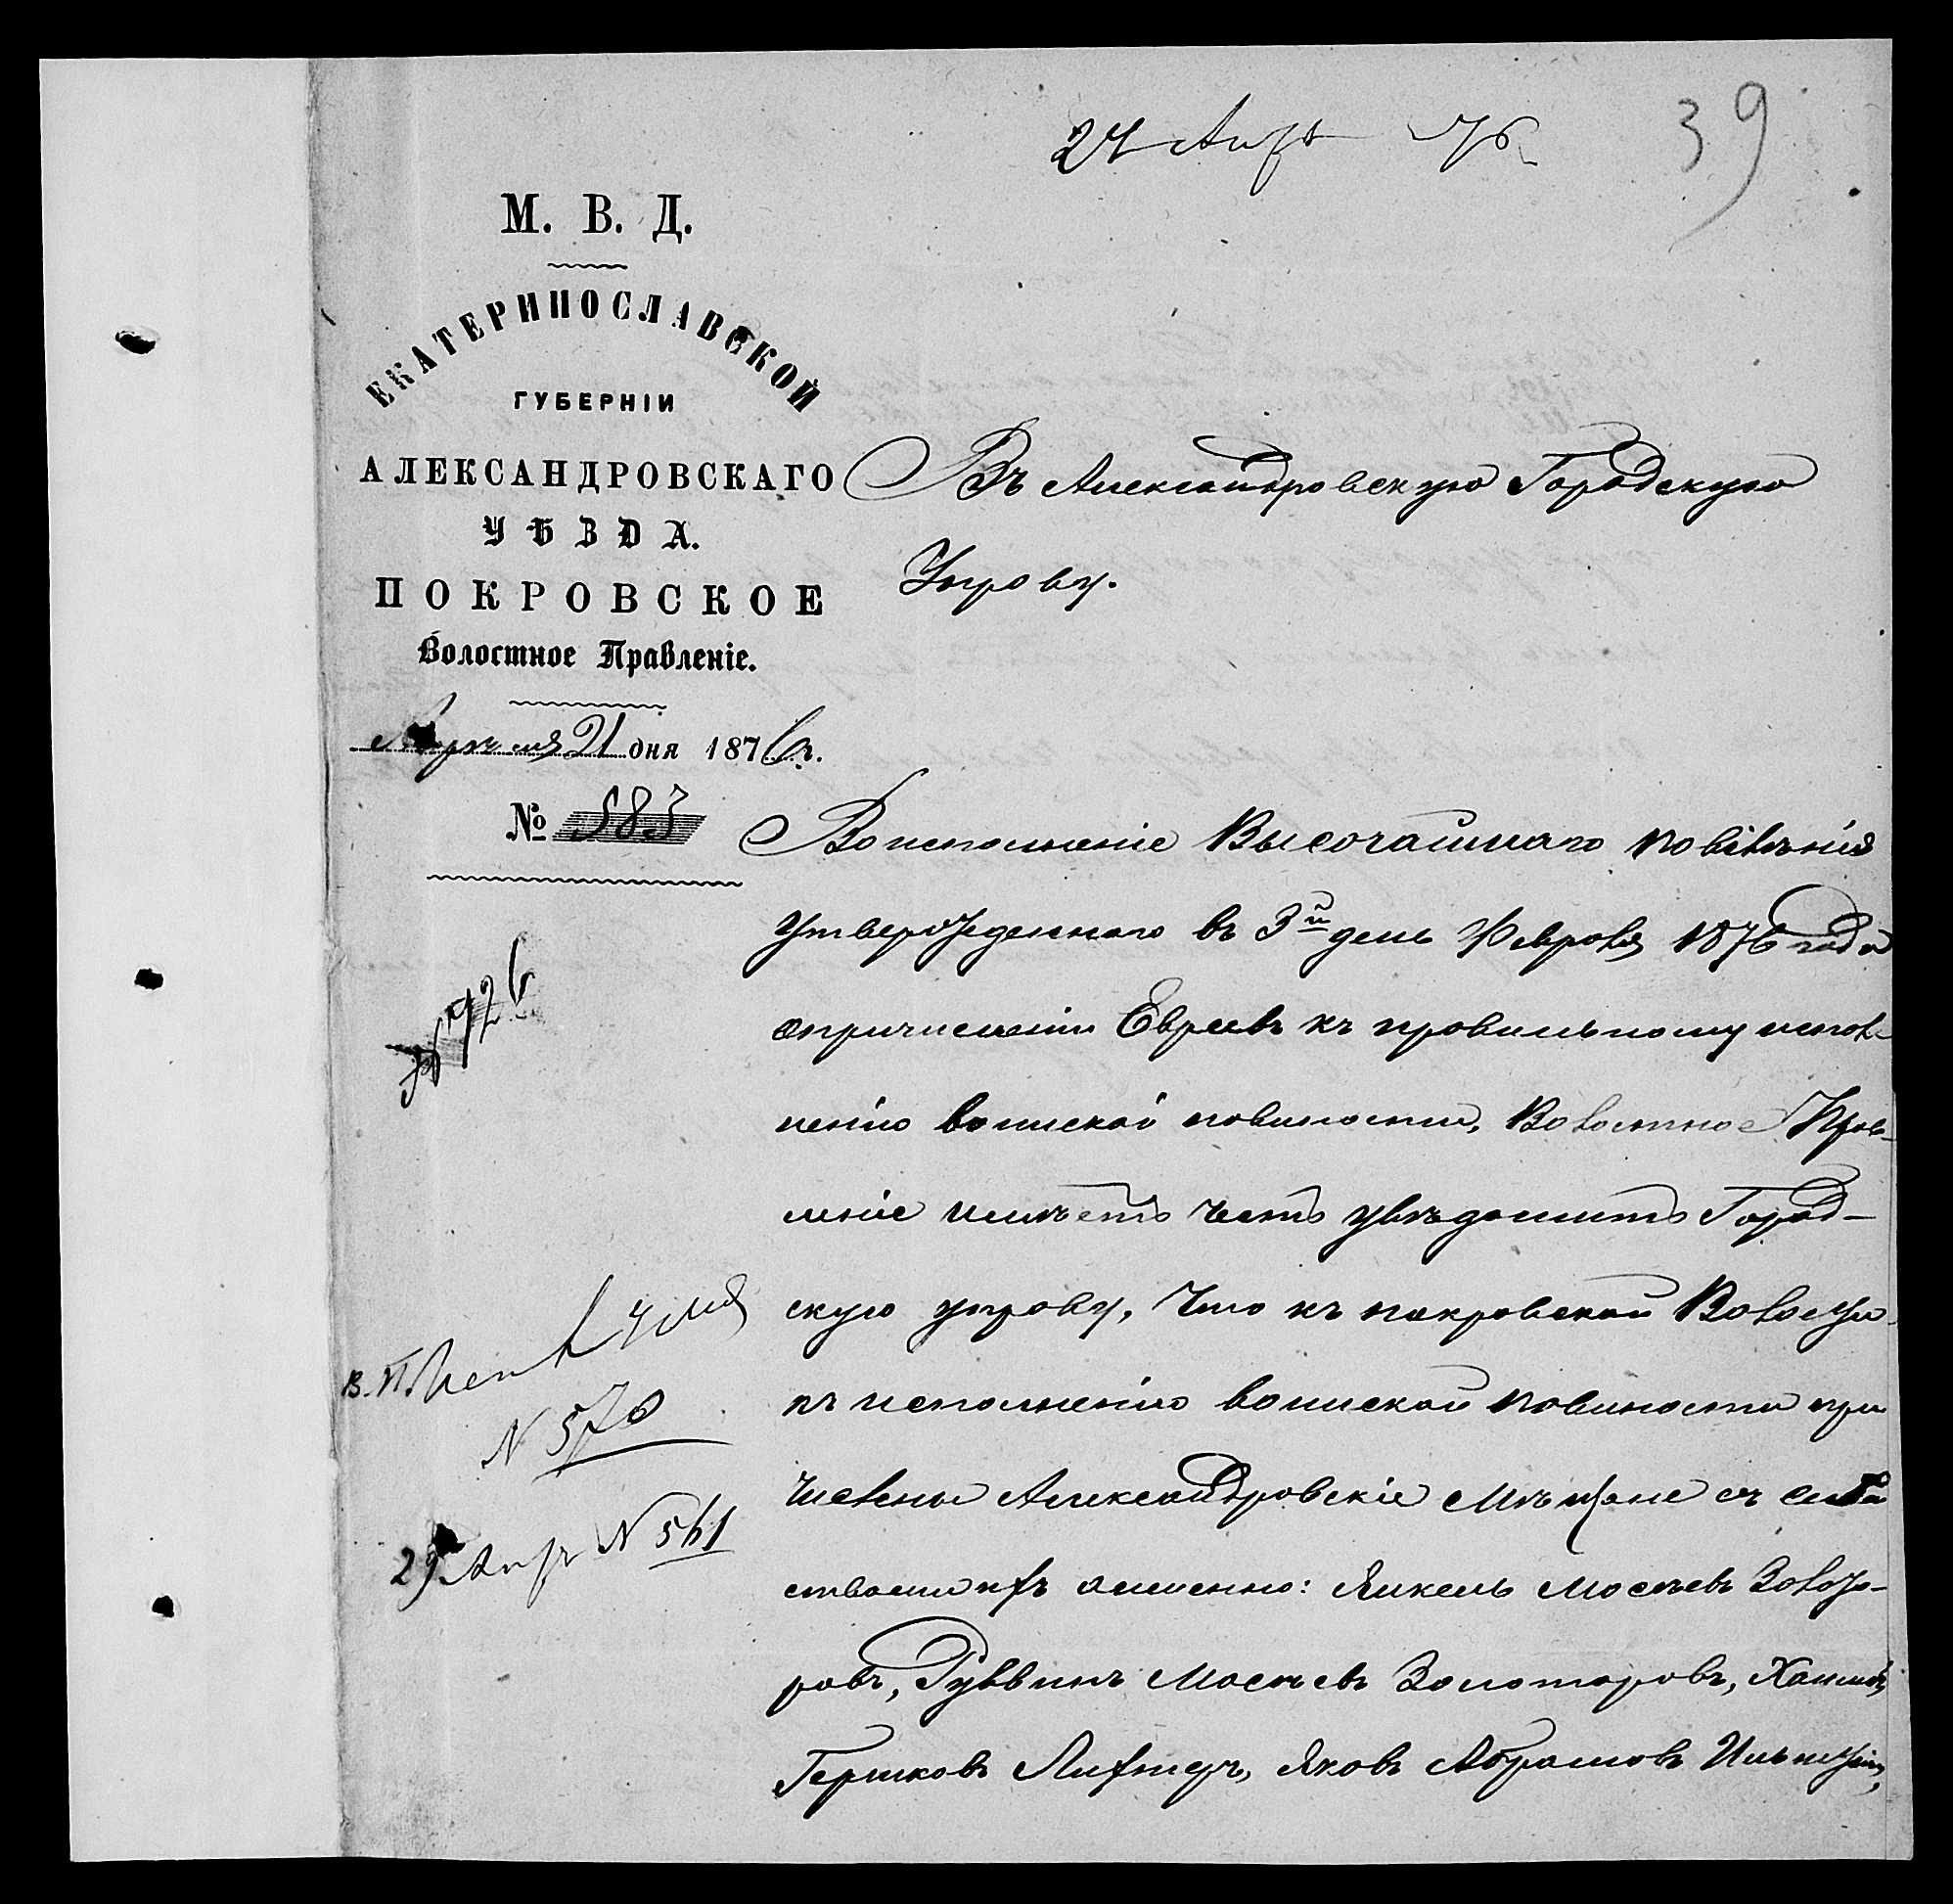 24 Апр 76
39
М. В. Д.
ЕКАТЕРИНОСЛАВСКОЙ
ГУБЕРНІИ
АЛЕКСАНДРОВСКАГО
УѢЗДА.
ПОКРОВСКОЕ
Волостное Правленіе.
Апрѣля 21 дня 1876 г.
№ 583
Въ Александровскую Городскую
Управу.
Во исполненіе Высочайшаго повѣлѣнія
утвержденнаго въ 3й день Февраля 1876 года
опричисленіи Евреевъ къ правильному испол
ненію воинской повиности, Волостное Прав-
леніе имѣетъ честь увѣдомить Город-
скую управу, что къ покровской Волости
къ исполненію воинской повиности при
числены Александровскіе мѣщане съ семей
ствами ихъ аименно: Янкель Мосѣевъ Золота-
ровъ, Руввинъ Мосѣевъ Золотаровъ, Хаимъ
Гершковъ Лифшедъ, Яковъ Абрамовъ
№ 926
В. П.
N 570
29 Апр N 561